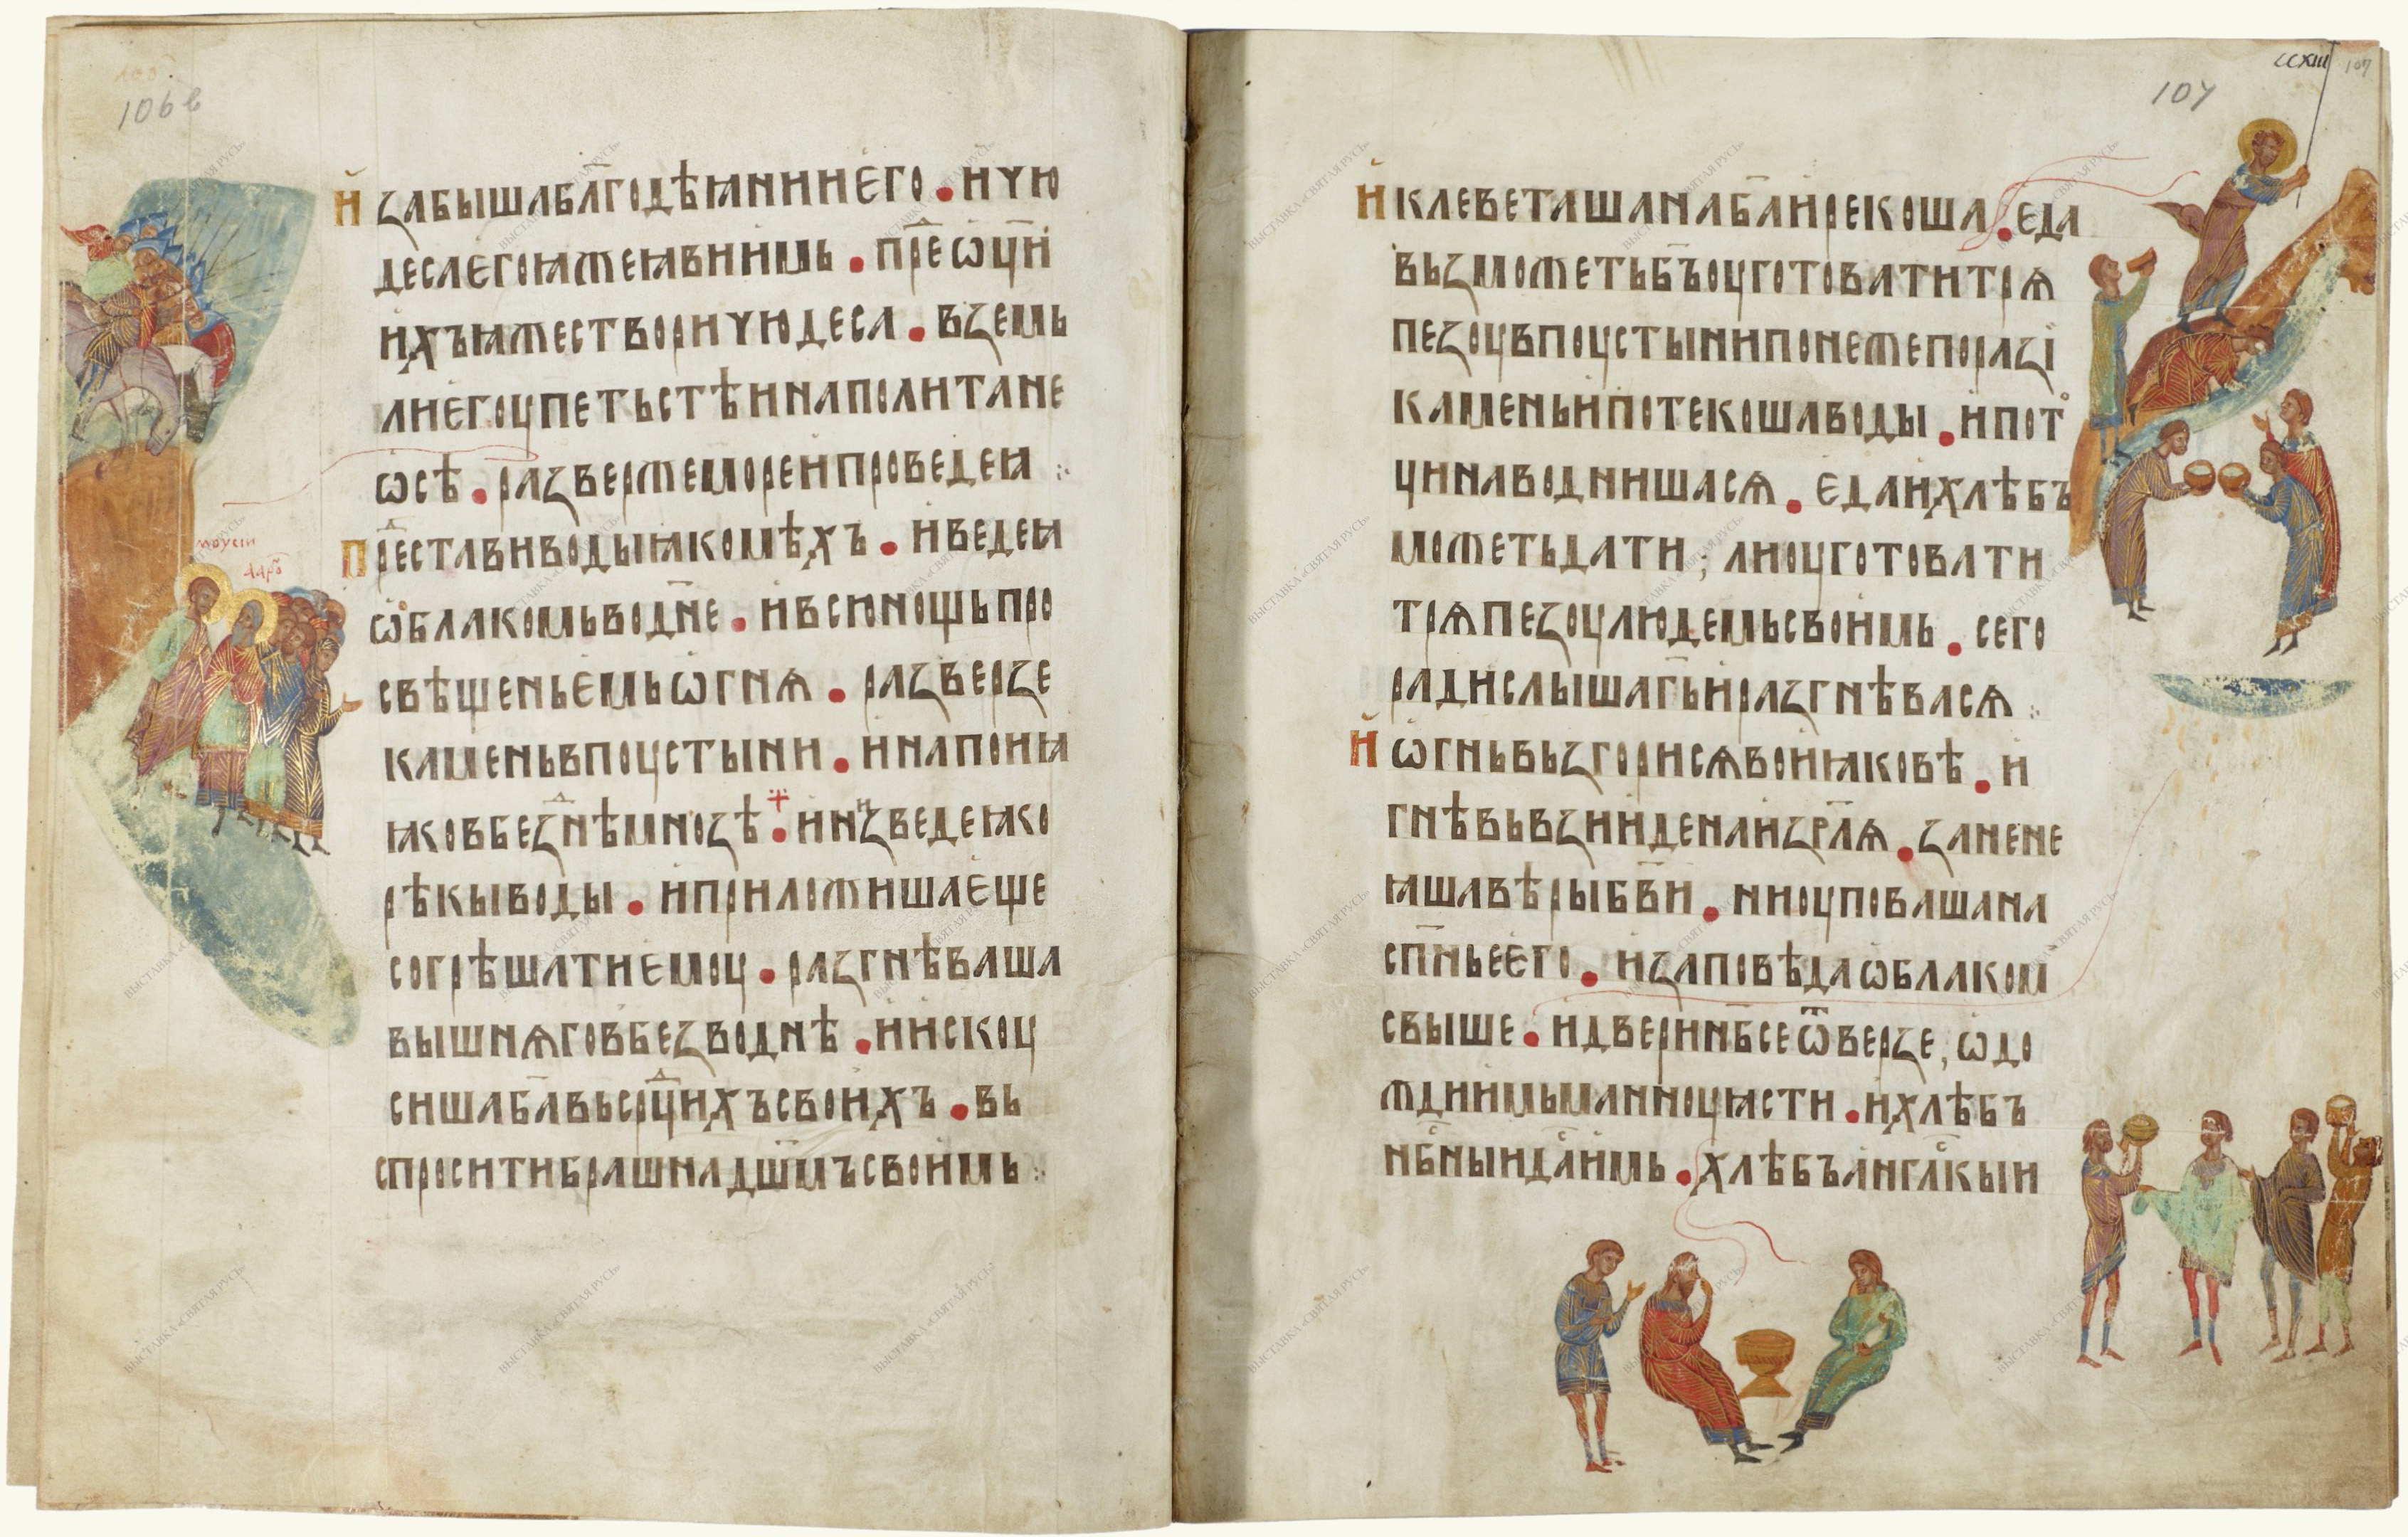 106 в
моусии
аарѡ
И҆ забышаблг҃одѣꙗнииѥго . ичю
десаѥгоꙗжеꙗвиимь . прⷣеѡц҃и
ихъꙗжестворичюдеса . вземь
лиѥгоупетьстѣинаполитане
ѡсѣ . развержемореипроведеꙗ :·
Прⷣеставиводыꙗкомѣхъ . иведеꙗ
ѡблакомьводн҃е . ивсюнощьпро
свѣщеньѥмьѡгнѧ . развերзе
каменьвпоустыни . инапоиꙗ
ꙗковбезⷣнѣмнозѣ . иизведеꙗко
рѣкыводы . иприложишаѥще
согрѣшатиѥмоу . разгнѣваша
вышнѧговбезводнѣ . иискоу
сишаба҃вьсрⷣц҃ихъсвоихъ . вь
спроситибрашнадш҃мъсвоимь :·
ССХІІІ 107
107
И҆ клеветашанаба҃ирекоша . еда
вьзможетьбъ҃оуготоватитрѧ
пезоувпоустынипонежепоразі
каменьипотекошаводы . ипото
цинаводнишасѧ . ѥдаихлѣбъ
можетьдати ; лиоуготовати
трѧпезоулюдемьсвоимь . сего
радислышагь҃иразгнѣвасѧ :·
И҆ ѡгньвьзгорисѧвоиꙗковѣ . и
гнѣвьвзииденаизрл҃ѧ . зανене
ꙗшавѣрыбв҃и . ниоуповашана
сп҃ньеѥго . изаповѣдаѡблаком
свыше . идверинб҃сеѿверзе , ѡдо
ждиимьманноуꙗсти . ихлѣбъ
нбⷭ҇ныидаⷭ҇имь . хлѣбъанглⷭ҇кыи
ВЫСТАВКА «СВЯТАЯ РУСЬ»